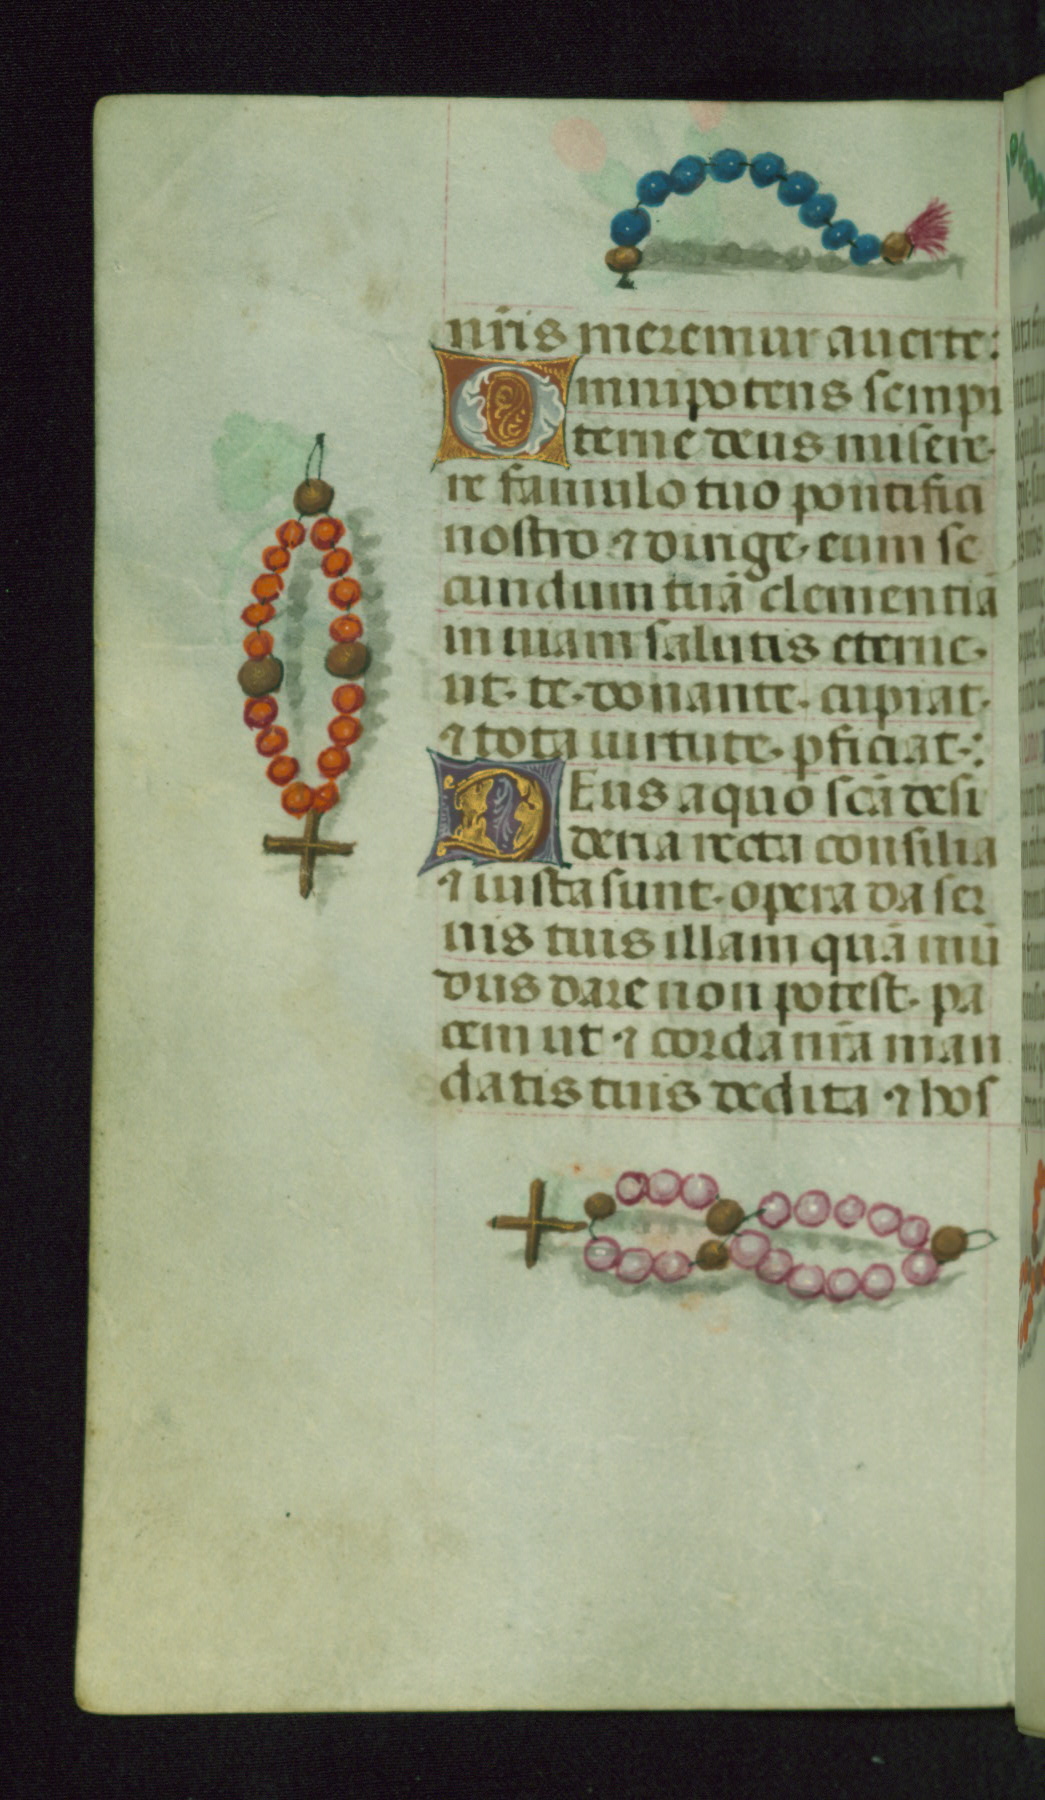 nr̃is meremur auerte:
Omnipotens sempi
terne deus misere-
re famulo tuo pontifici
nostro ⁊ dirige. eum se
cundum tuã clementiã
in uiam salutis eterne.
ut. te. donante. cupiat.
⁊ tota uirtute. pficiat.:
Deus a quo scã desi
deria recta consilia
⁊ iusta sunt. opera da ser
uis tuis illam quã mũ
dus dare non potest. pa
cem ut ⁊ corda nrã man
datis tuis dedita ⁊ hos